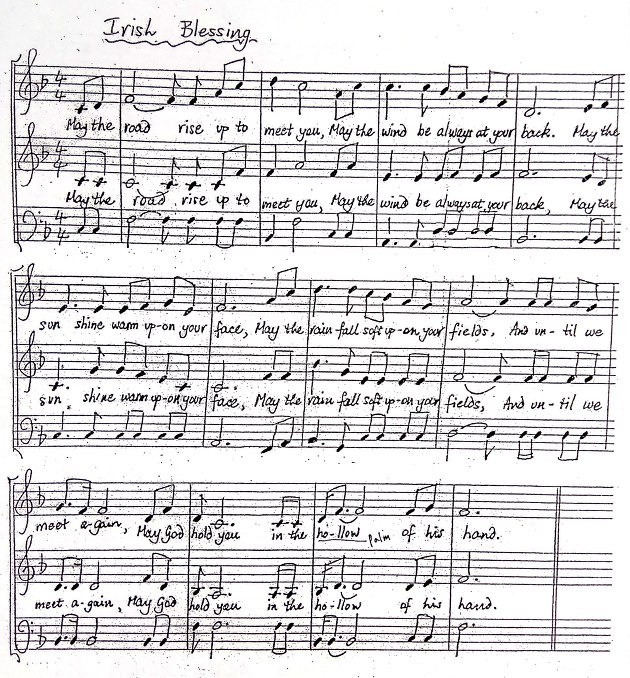 Irish Blessing
4 4
May the road rise up to meet you, May the wind be always at your back. May the
4 4
May the road rise up to meet you, May the wind be always at your back, May the
4 4
sun shine warm up-on your face, May the rain fall soft up-on your fields, And un-til we
sun shine warm up-on your face, May the rain fall soft up-on your fields, And un-til we
meet a-gain, May God hold you in the ho-llow palm of his hand.
meet a-gain, May God hold you in the ho-llow of his hand.